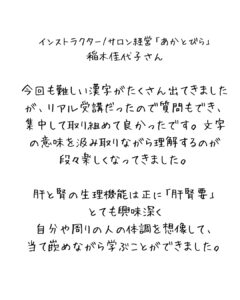 インストラクター/サロン経営「あかとびら」
稲木佳代子さん
今回も難しい漢字がたくさん出てきました
が、リアル受講だったので質問もでき、
集中して取り組めて良かったです。文字
の意味を汲み取りながら理解するのが
段々楽しくなってきました。
肝と腎の生理機能は正に「肝腎要」
とても興味深く
自分や周りの人の体調を想像して、
当て嵌めながら学ぶことができました。